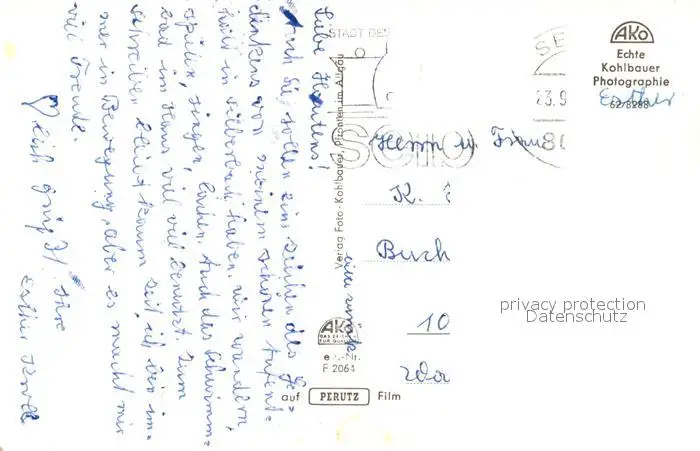 Liebe Hoentens!
Auch Sie sollen ein Zeichen des Ge=
denkens von meinem schönen Aufent=
halt in Silberbach haben. Wir wandern,
spielen, singen, lachen. Auch das Schwimm=
bad im Haus viel viel benutzt. Zum
schreiben bleibt kaum Zeit ich bin im=
mer in Bewegung, aber es macht mir
viel Freude.
Herzlich grüßt Ihre
Esther
STADT DES
Verlag Foto-Kohlbauer, Pfronten im Allgäu
AKO
Echte
Kohlbauer
Photographie
62/8288
Esther
23.9
80
Herrn u. Frau
K.
Buch
10
privacy protection
Datenschutz
AKO
DAS ZEICHEN
FÜR QUALITÄT
F 2064
auf PERUTZ Film